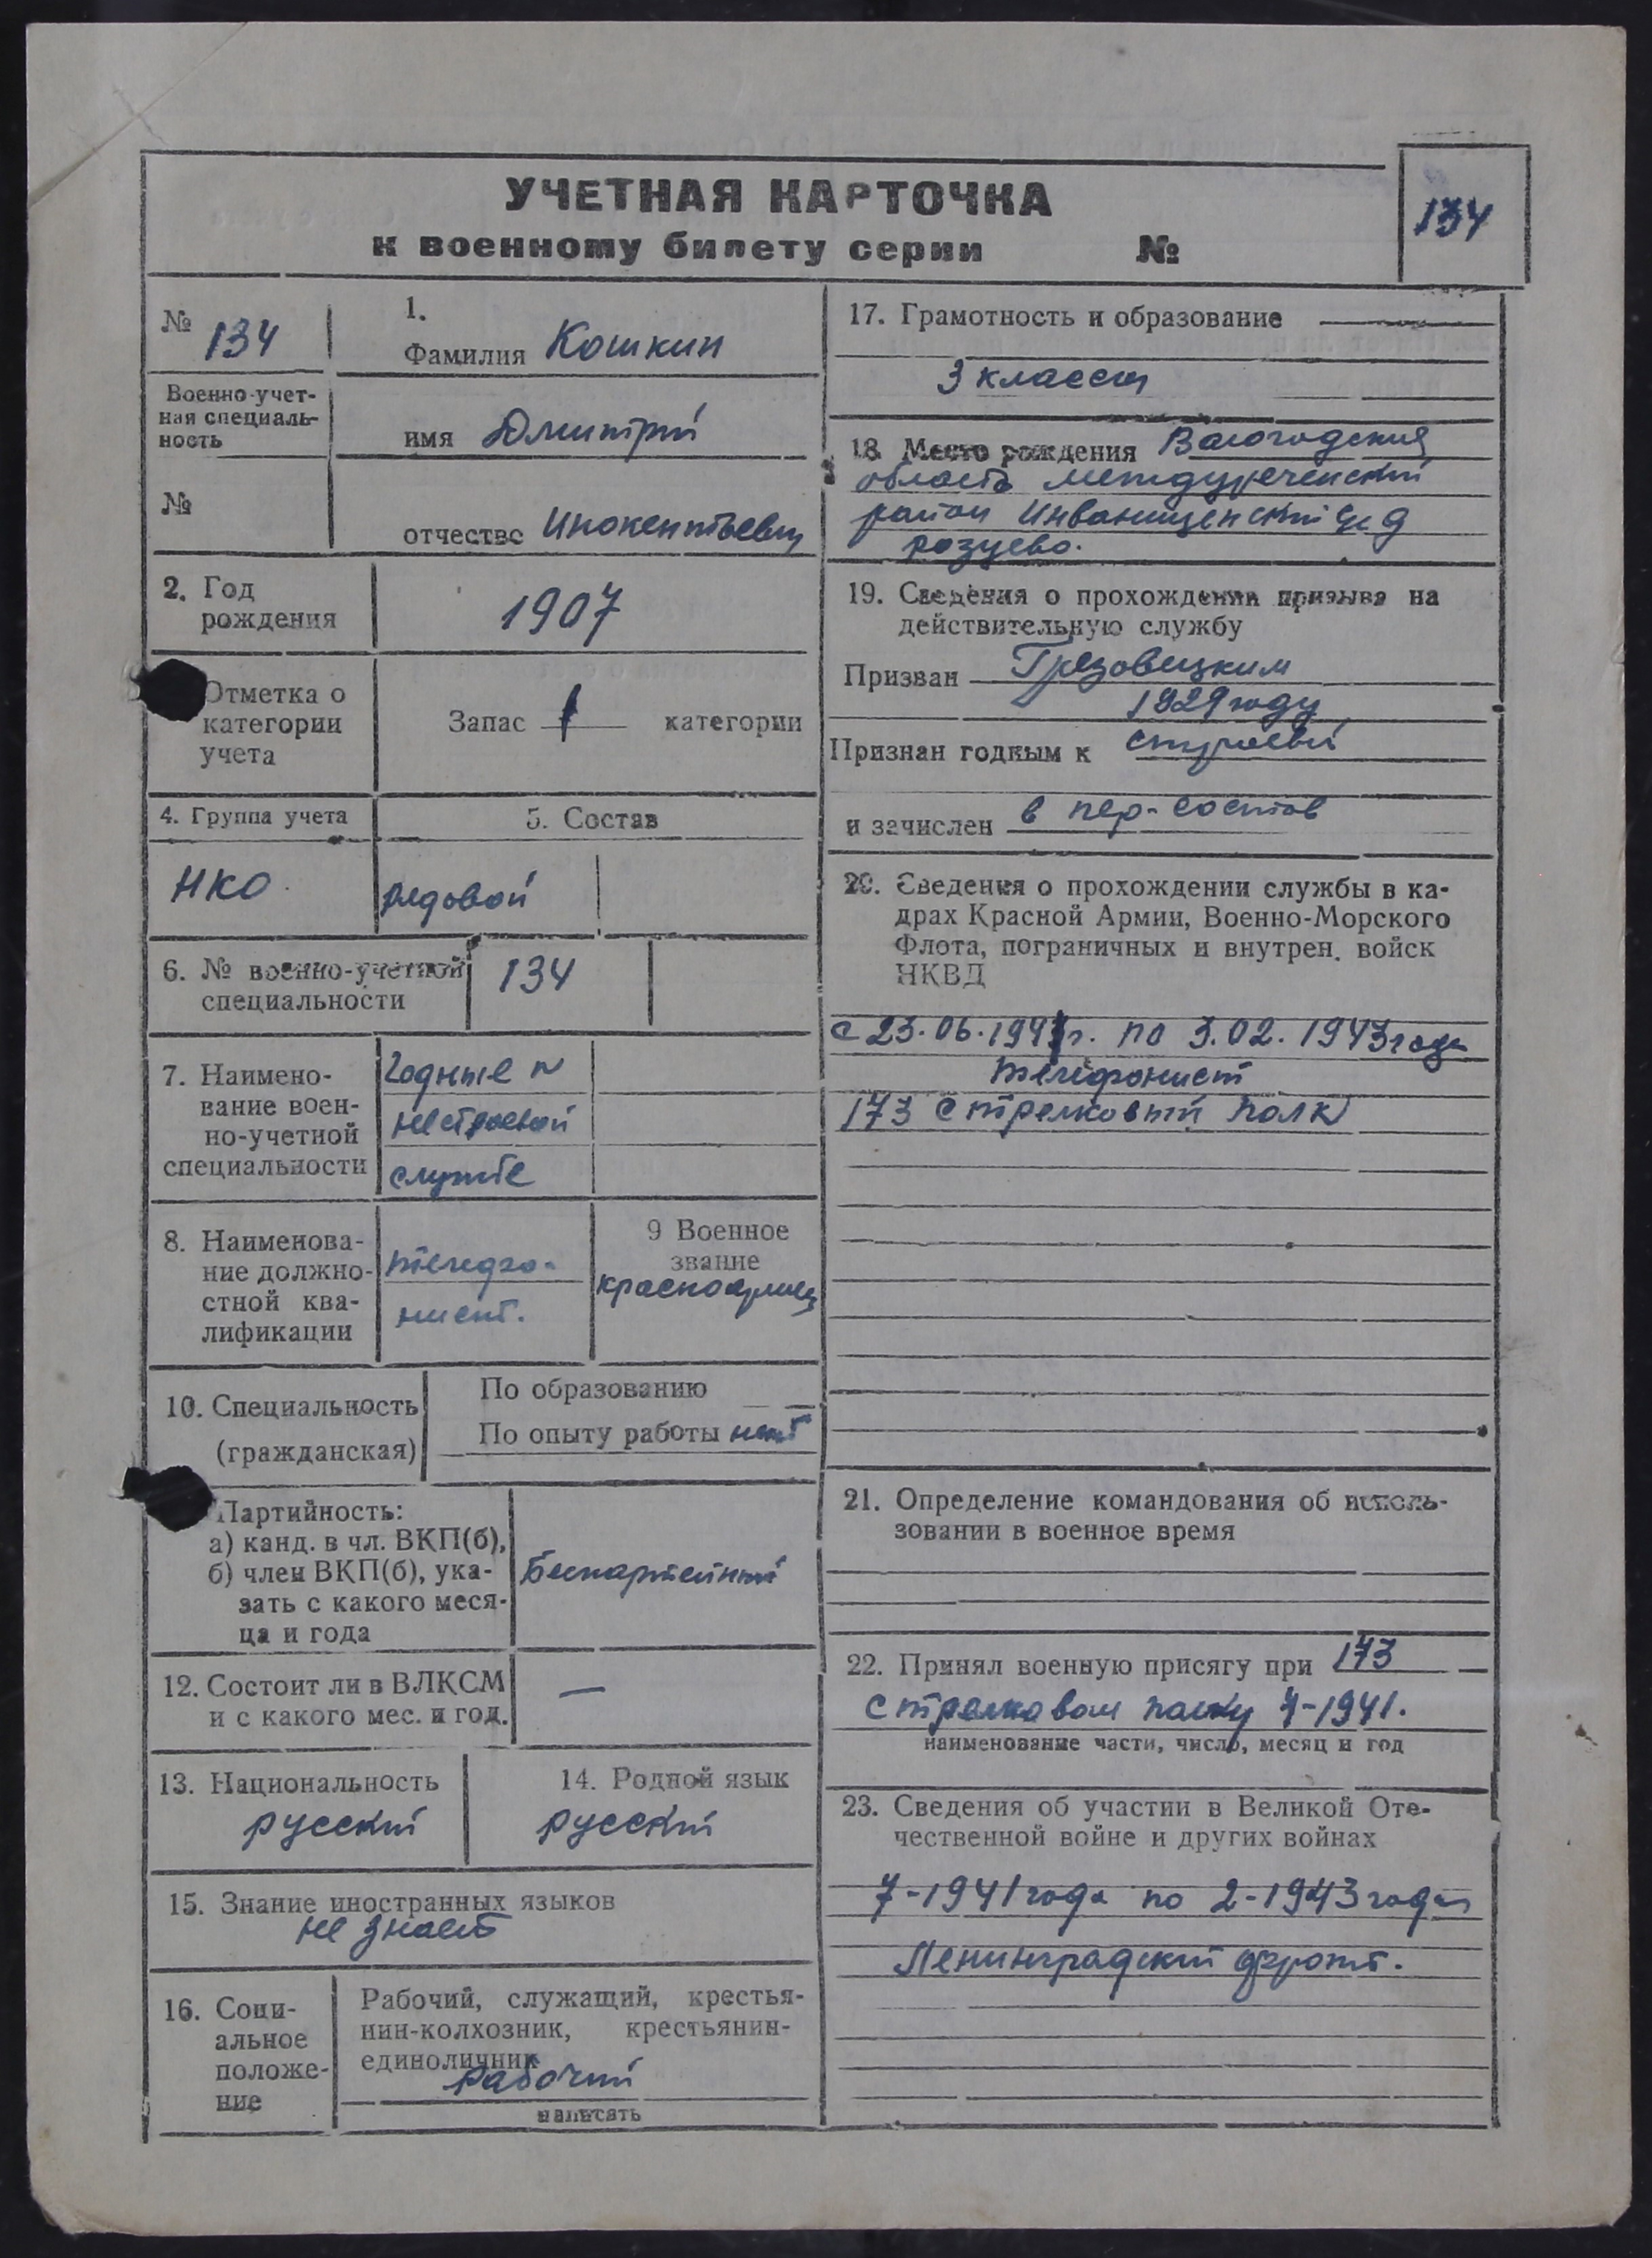 УЧЕТНАЯ КАРТОЧКА
к военному билету серии №
134
№ 134
1.
Фамилия Кошкин
Военно-учет-
ная специаль-
ность
имя Дмитрий
№
отчество Инокентьевич
2. Год
рождения
1907
Отметка о
категории
учета
Запас 1 категории
4. Группа учета
5. Состав
НКО
рядовой
6. № военно-учетной
специальности
134
7. Наимено-
вание воен-
но-учетной
специальности
Годные к
нестроевой
службе
8. Наименова-
ние должно-
стной ква-
лификации
телефо-
нист.
9 Военное
звание
красноармеец
10. Специальность
(гражданская)
По образованию
По опыту работы нет
Партийность:
а) канд. в чл. ВКП(б),
б) член ВКП(б), ука-
зать с какого меся-
ца и года
Беспартейный
12. Состоит ли в ВЛКСМ
и с какого мес. и год.
—
13. Национальность
русский
14. Родной язык
русский
15. Знание иностранных языков
не знает
16. Соци-
альное
положе-
ние
Рабочий, служащий, крестья-
нин-колхозник, крестьянин-
единоличник
рабочий
написать
17. Грамотность и образование
3 класса
18. Место рождения Вологодская
область междуреченский
район
19. Сведения о прохождении призыва на
действительную службу
Призван Грязовецким
1929 году
Признан годным к строевой
и зачислен в пер-состав
20. Сведения о прохождении службы в ка-
драх Красной Армии, Военно-Морского
Флота, пограничных и внутрен. войск
НКВД
с 23.06.1941г. по 3.02.1943 года
телефонист
173 стрелковый полк
21. Определение командования об исполь-
зовании в военное время
22. Принял военную присягу при 173
стрелковом полку 7-1941.
наименование части, число, месяц и год
23. Сведения об участии в Великой Оте-
чественной войне и других войнах
7-1941 года по 2-1943 года
Ленинградский фронт.